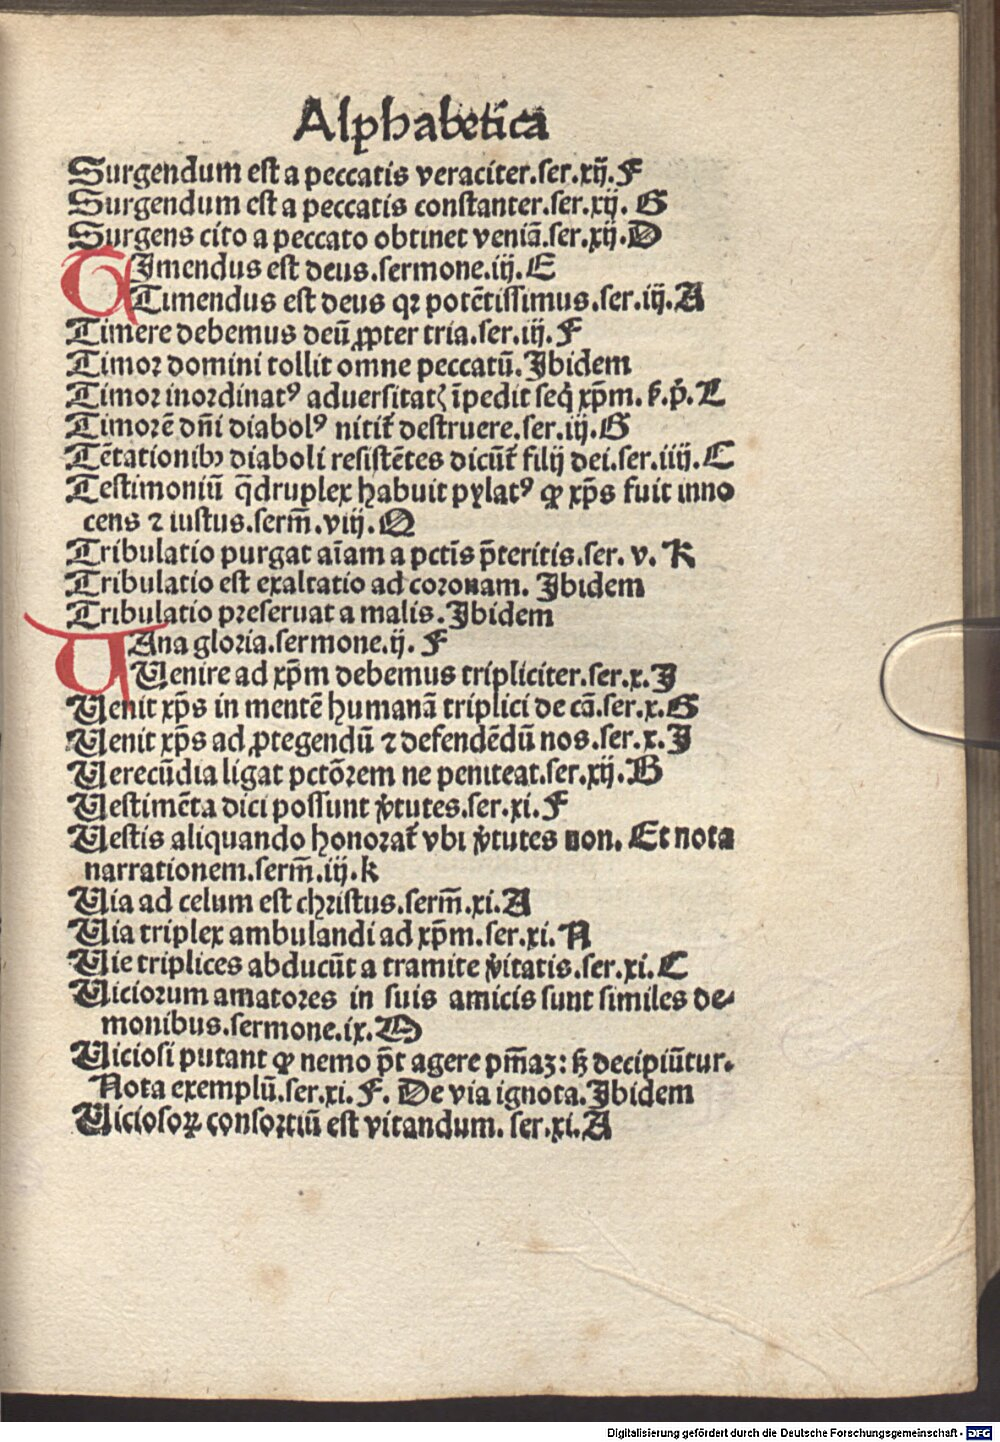 Alphabetica
Surgendum est a peccatis veraciter.ser.xij.F
Surgendum est a peccatis constanter.ser.xij.G
Surgens cito a peccato obtinet veniā.ser.xij.D
TImendus est deus.sermone.iij.E
Timendus est deus qꝛ potētissimus.ser.iij.A
Timere debemus deū ꝓpter tria.ser.iij.F
Timor domini tollit omne peccatū.Ibidem
Timor inordinatꝰ aduersitatꝭ īpedit seq̄ xp̄m.
Timorē dn̄i diabolꝰ nitit̄ destruere.ser.iij.G
Tētationibꝰ diaboli resistētes dicūt̄ filij dei.ser.iiij.C
Testimoniū q̄druplex habuit pylatꝰ ꝙ xp̄s fuit inno
cens ⁊ iustus.serm̄.viij.Q
Tribulatio purgat aīam a pctīs p̄teritis.ser. v. K
Tribulatio est exaltatio ad coronam. Ibidem
Tribulatio preseruat a malis.Ibidem
VAna gloria.sermone.ij. F
Uenire ad xp̄m debemus tripliciter.ser.x.I
Uenit xp̄s in mentē humanā triplici de cā.ser.x.G
Uenit xp̄s ad ꝓtegendū ⁊ defendēdū nos.ser.x.I
Uerecūdia ligat pctōrem ne peniteat.ser.xij.B
Uestimēta dici possunt v̄tutes.ser.xi.F
Uestis aliquando honorat̄ vbi v̄tutes non. Et nota
narrationem.serm̄.iij.k
Uia ad celum est christus.serm̄.xi.A
Uia triplex ambulandi ad xp̄m.ser.xi.N
Uie triplices abducūt a tramite v̄itatis.ser.xi.C
Uiciorum amatores in suis amicis sunt similes de⸗
monibus.sermone.ix.O
Uiciosi putant ꝙ nemo p̄t agere pm̄aꝫ: sꝫ decipiūtur.
Nota exemplū.ser.xi.F. De via ignota.Ibidem
Uiciosoꝝ consortiū est vitandum. ser.xi.A
Digitalisierung gefördert durch die Deutsche Forschungsgemeinschaft - DFG